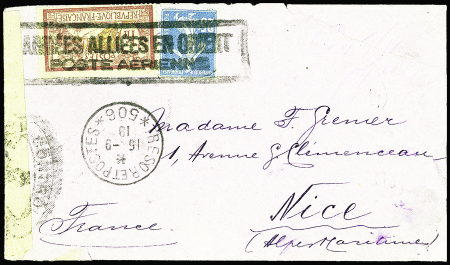 RÉPUBLIQUE FRANÇAISE
ARMÉES ALLIÉES EN ORIENT
POSTE AÉRIENNE
TRESOR ET POSTES * 506 *
16 - 9
19
Madame F. Grenier
1, Avenue G. Clémenceau
Nice
France
(Alpes Maritimes)